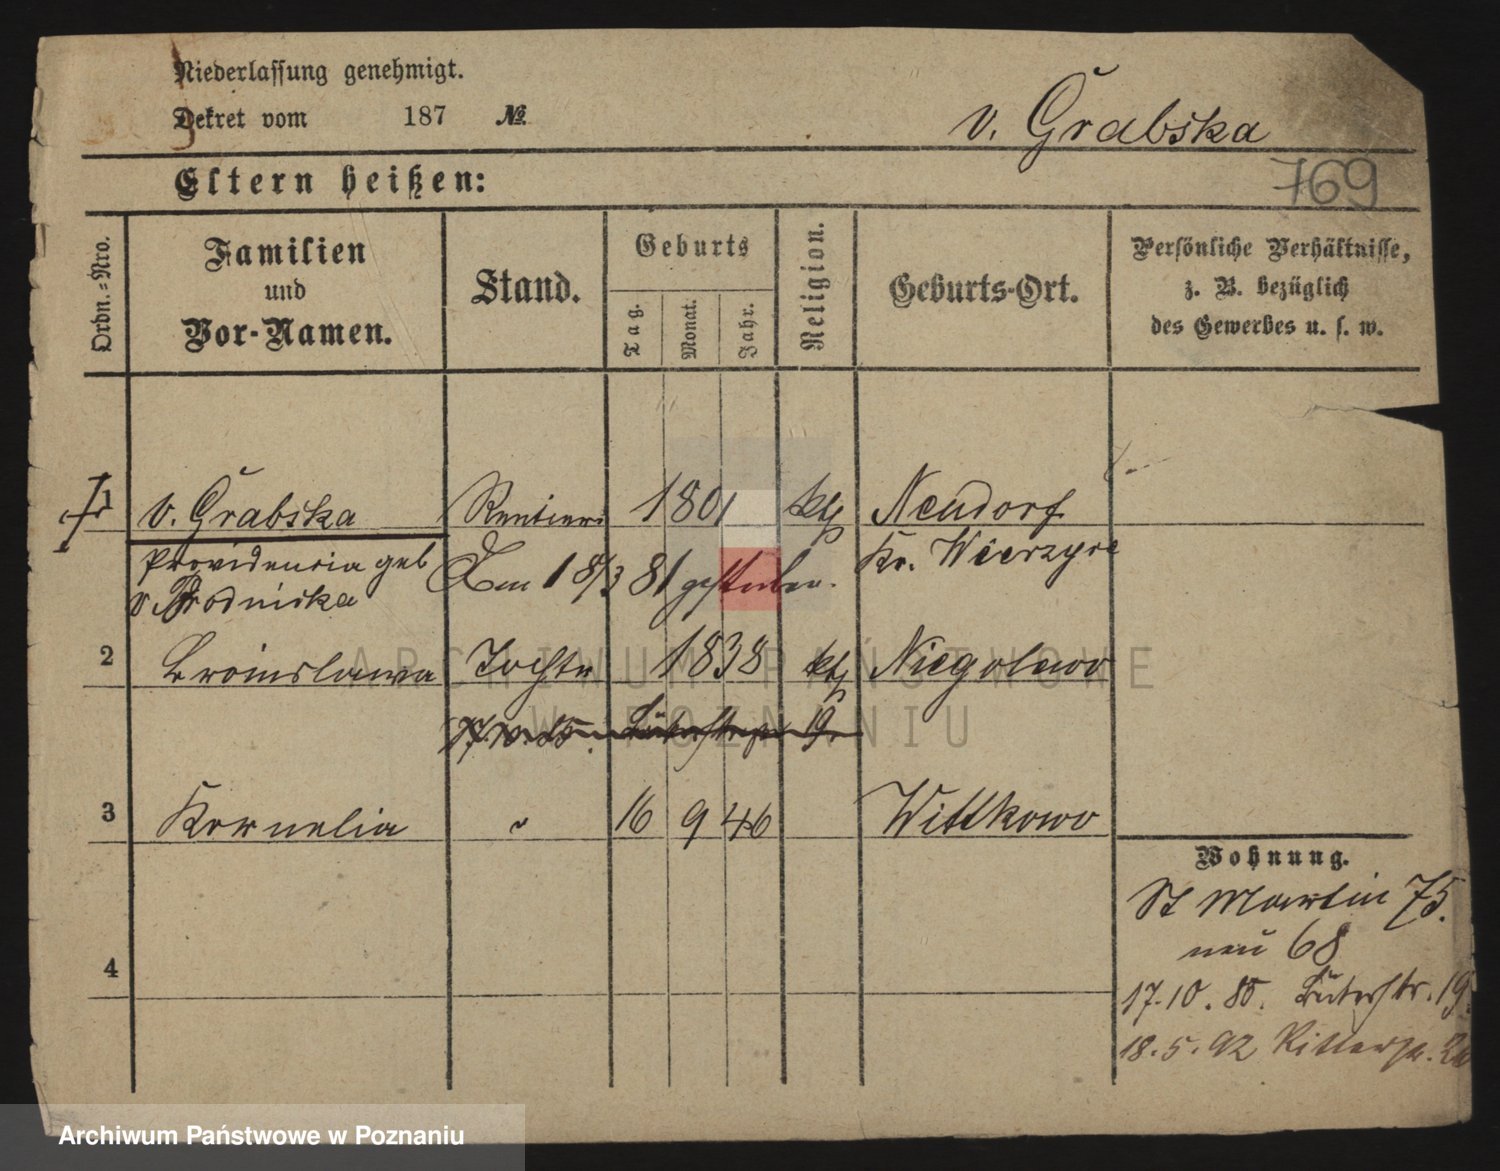 Niederlassung genehmigt.
Dekret vom 187 №.
v. Grabska
769
Eltern heißen:
Ordn.-Nro.
Familien und Vor-Namen.
Stand.
Geburts
Tag.
Monat.
Jahr.
Religion.
Geburts-Ort.
Persönliche Verhältnisse,
z. B. bezüglich
des Gewerbes u. s. w.
1 v. Grabska Rentiere 1801 kth Neudorf
Providencia geb Am 18/3 81 gestorben. Kr. Wierzyce
v Brodnicka
2 Bronislawa Tochter 1838 kth Niegolewo
17.10.85. 19
3 Kornelia " 16 9 46 Wittkowo
Wohnung.
St Martin 75.
neu 68
4
17.10.85. 19
18.5.92 Ritterstr.
ARCHIWUM PAŃSTWOWE
W POZNANIU
Archiwum Państwowe w Poznaniu